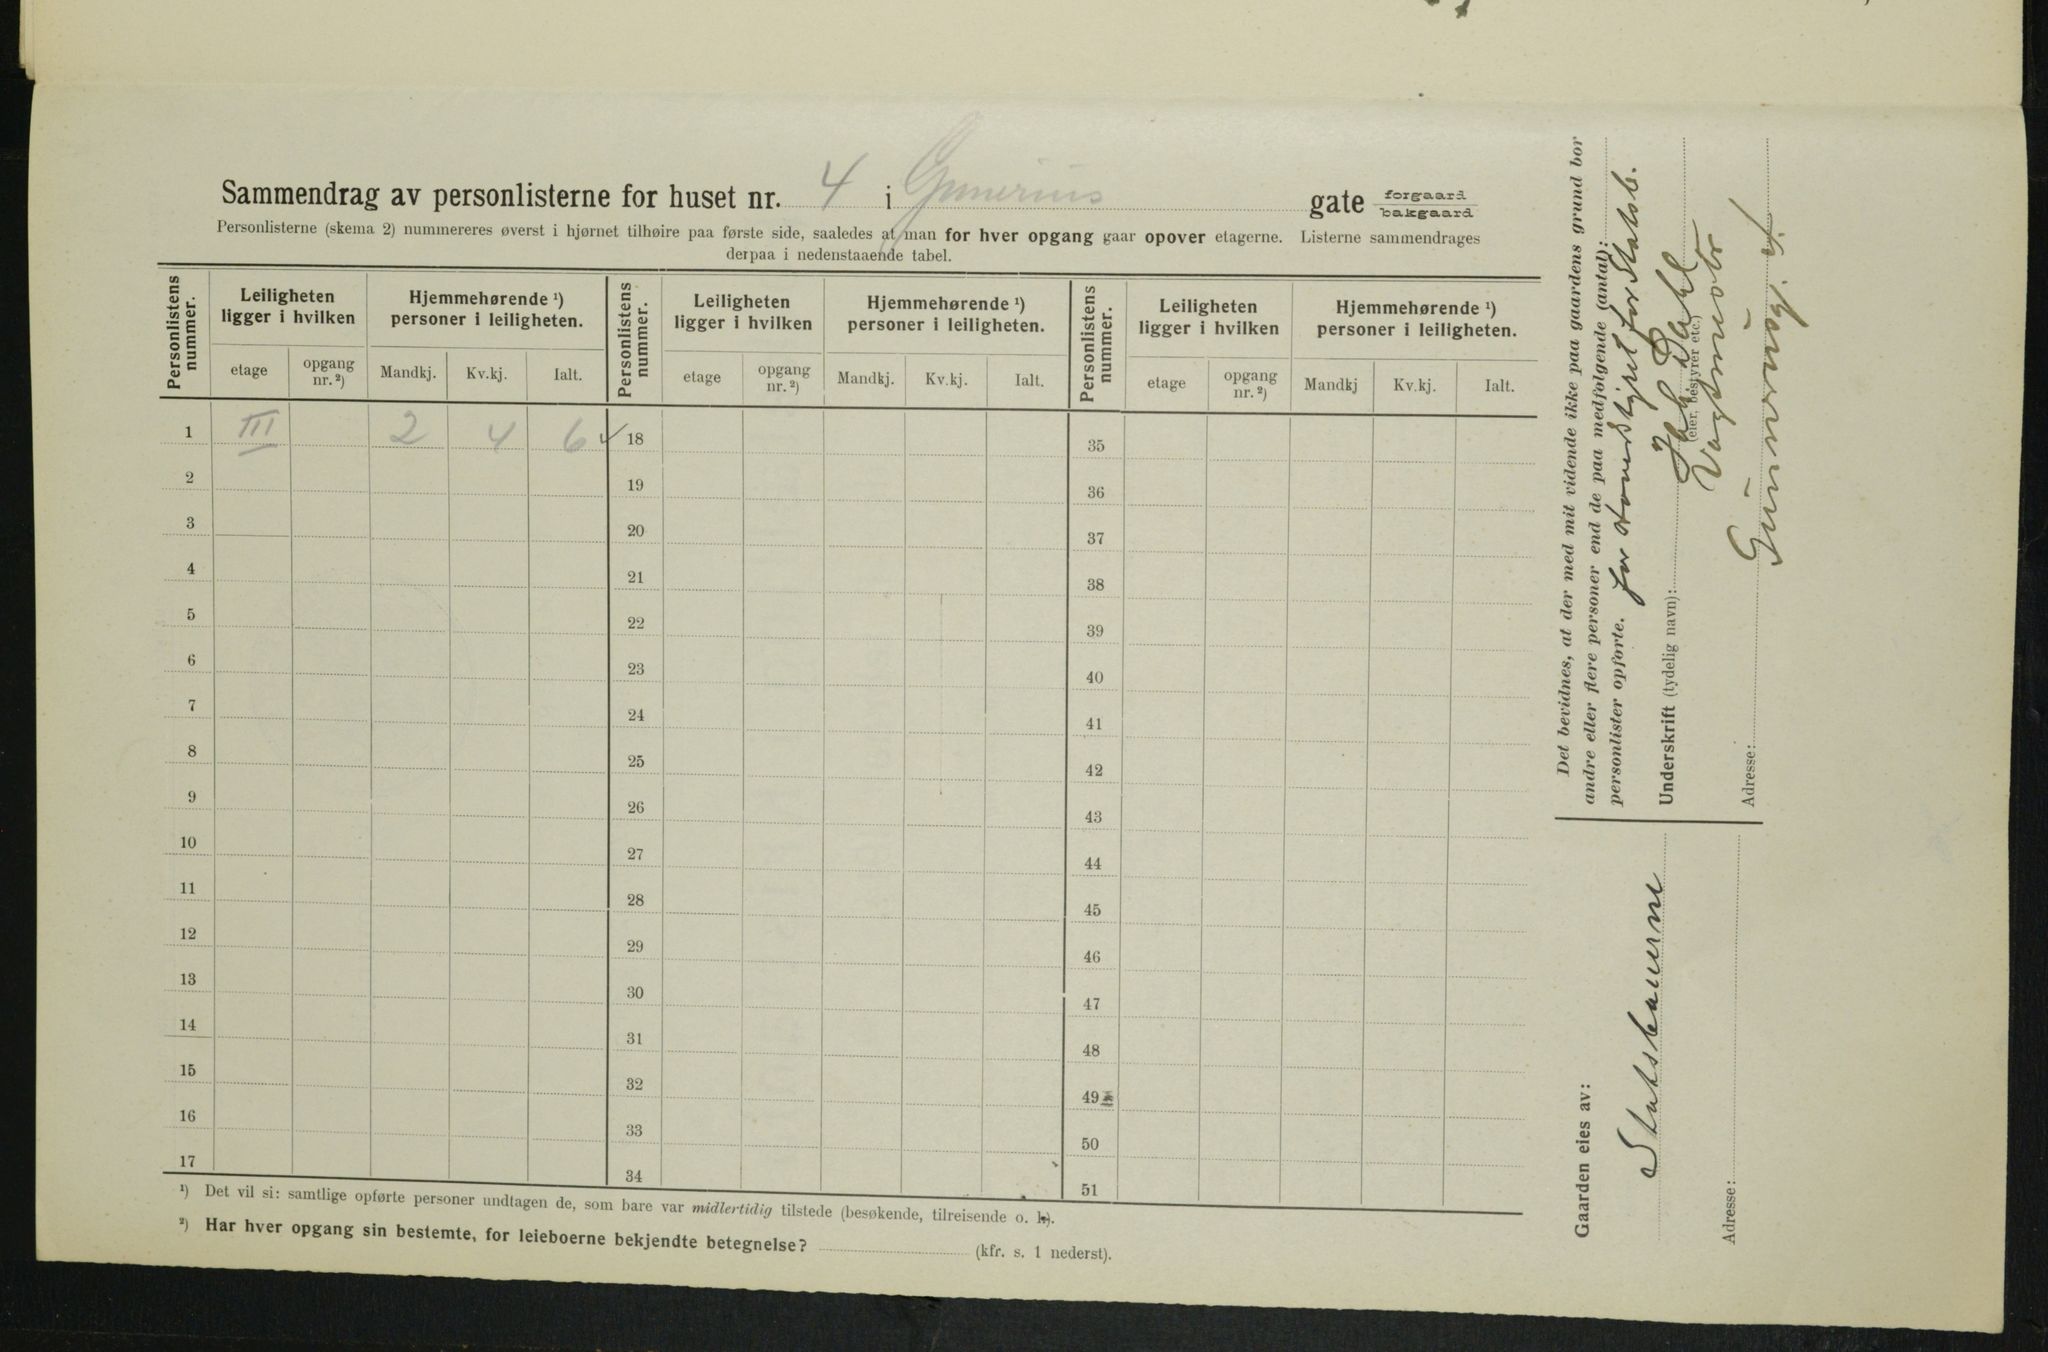 Sammendrag av personlisterne for huset nr. 4 i Gunerius gate forgaard bakgaard
Personlisterne (skema 2) nummereres øverst i hjørnet tilhøire paa første side, saaledes at man for hver opgang gaar opover etagerne. Listerne sammendrages
derpaa i nedenstaaende tabel.
Personlistens nummer. Leiligheten ligger i hvilken Hjemmehørende ¹) personer i leiligheten. Personlistens nummer. Leiligheten ligger i hvilken Hjemmehørende ¹) personer i leiligheten. Personlistens nummer. Leiligheten ligger i hvilken Hjemmehørende ¹) personer i leiligheten.
etage opgang nr. ²) Mandkj. Kv.kj. Ialt. etage opgang nr. ²) Mandkj. Kv.kj. Ialt. etage opgang nr. ²) Mandkj Kv.kj. Ialt.
1 III 2 4 6 ✓ 18 35
2 19 36
3 20 37
4 21 38
5 22 39
6 23 40
7 24 41
8 25 42
9 26 43
10 27 44
11 28 45
12 29 46
13 30 47
14 31 48
15 32 49
16 33 50
17 34 51
¹) Det vil si: samtlige opførte personer undtagen de, som bare var midlertidig tilstede (besøkende, tilreisende o. l.).
²) Har hver opgang sin bestemte, for leieboerne bekjendte betegnelse? (kfr. s. 1 nederst).
Det bevidnes, at der med mit vidende ikke paa gaardens grund bor
andre eller flere personer end de paa medfølgende (antal):
personlister opførte. for Hovedstyret for Statsb.
Underskrift (tydelig navn): Dahl
(eier, bestyrer etc.)
Vagtmester
Adresse: Guneriusgt. 4
Gaarden eies av:
Statsbanerne
Adresse: